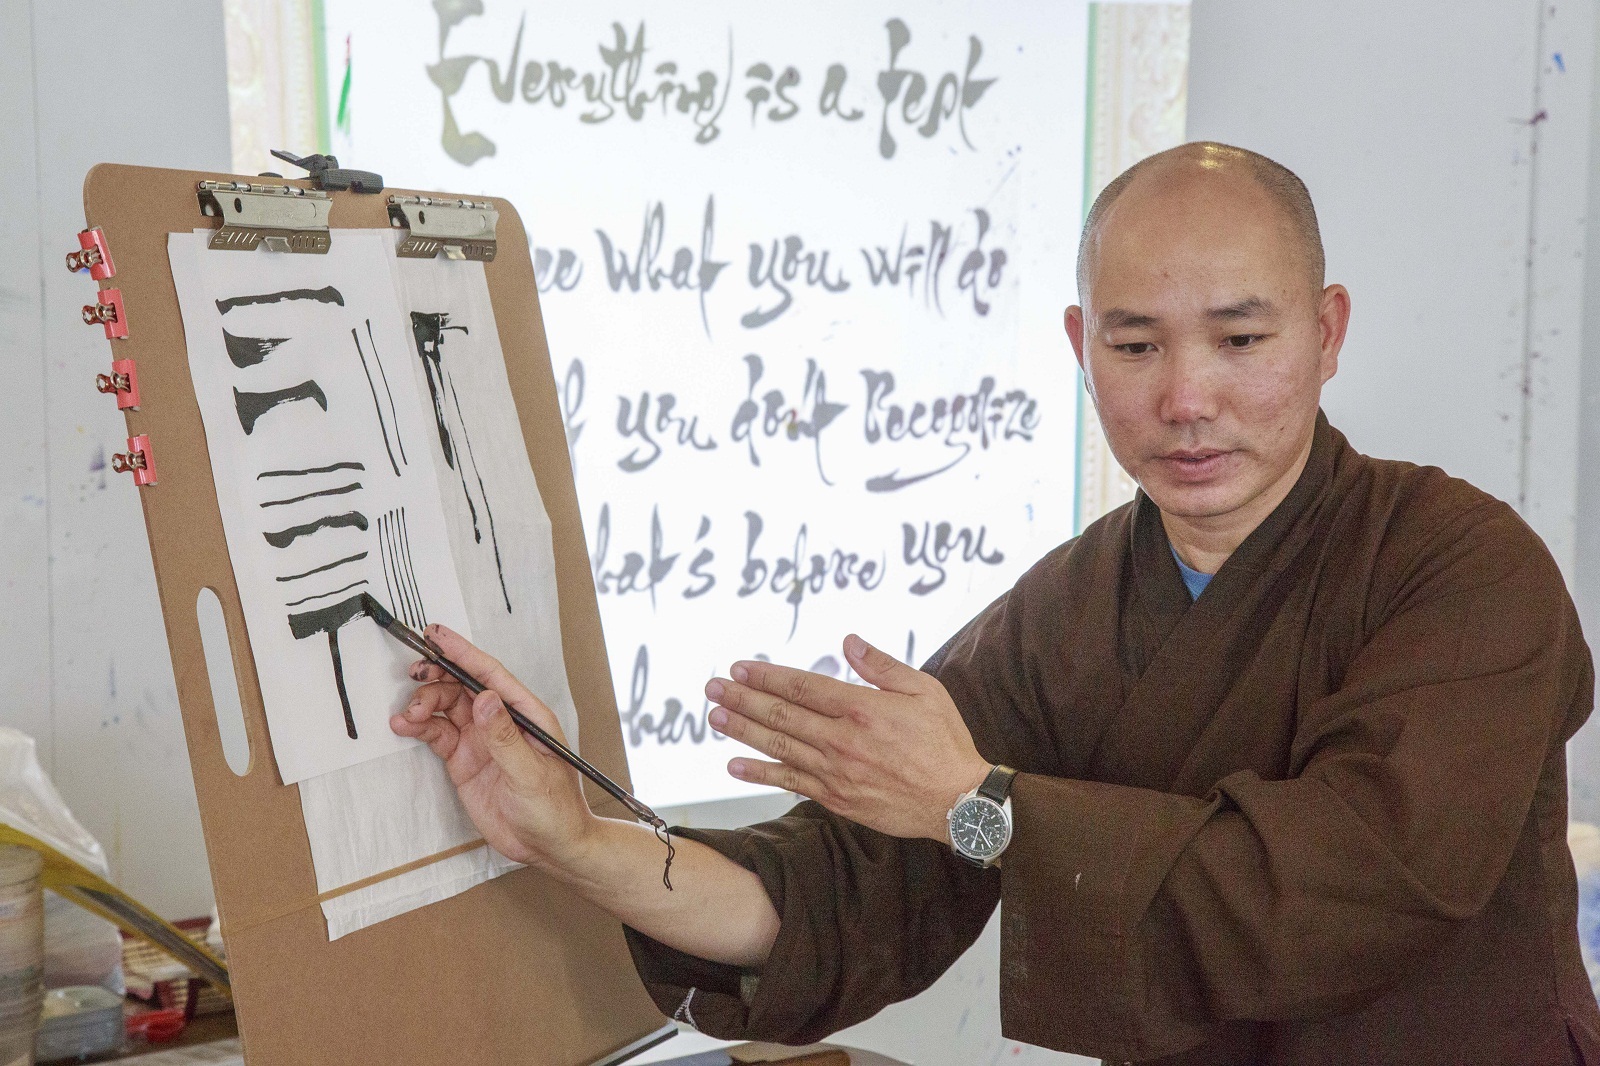 Everything is a test
see what you will do
if you don't recognize
what's before you
have